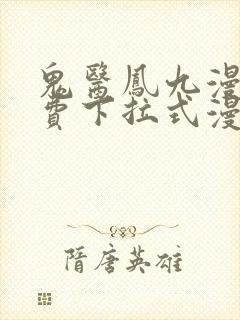 鬼醫鳳九漫
費下拉式漫
隋唐英雄